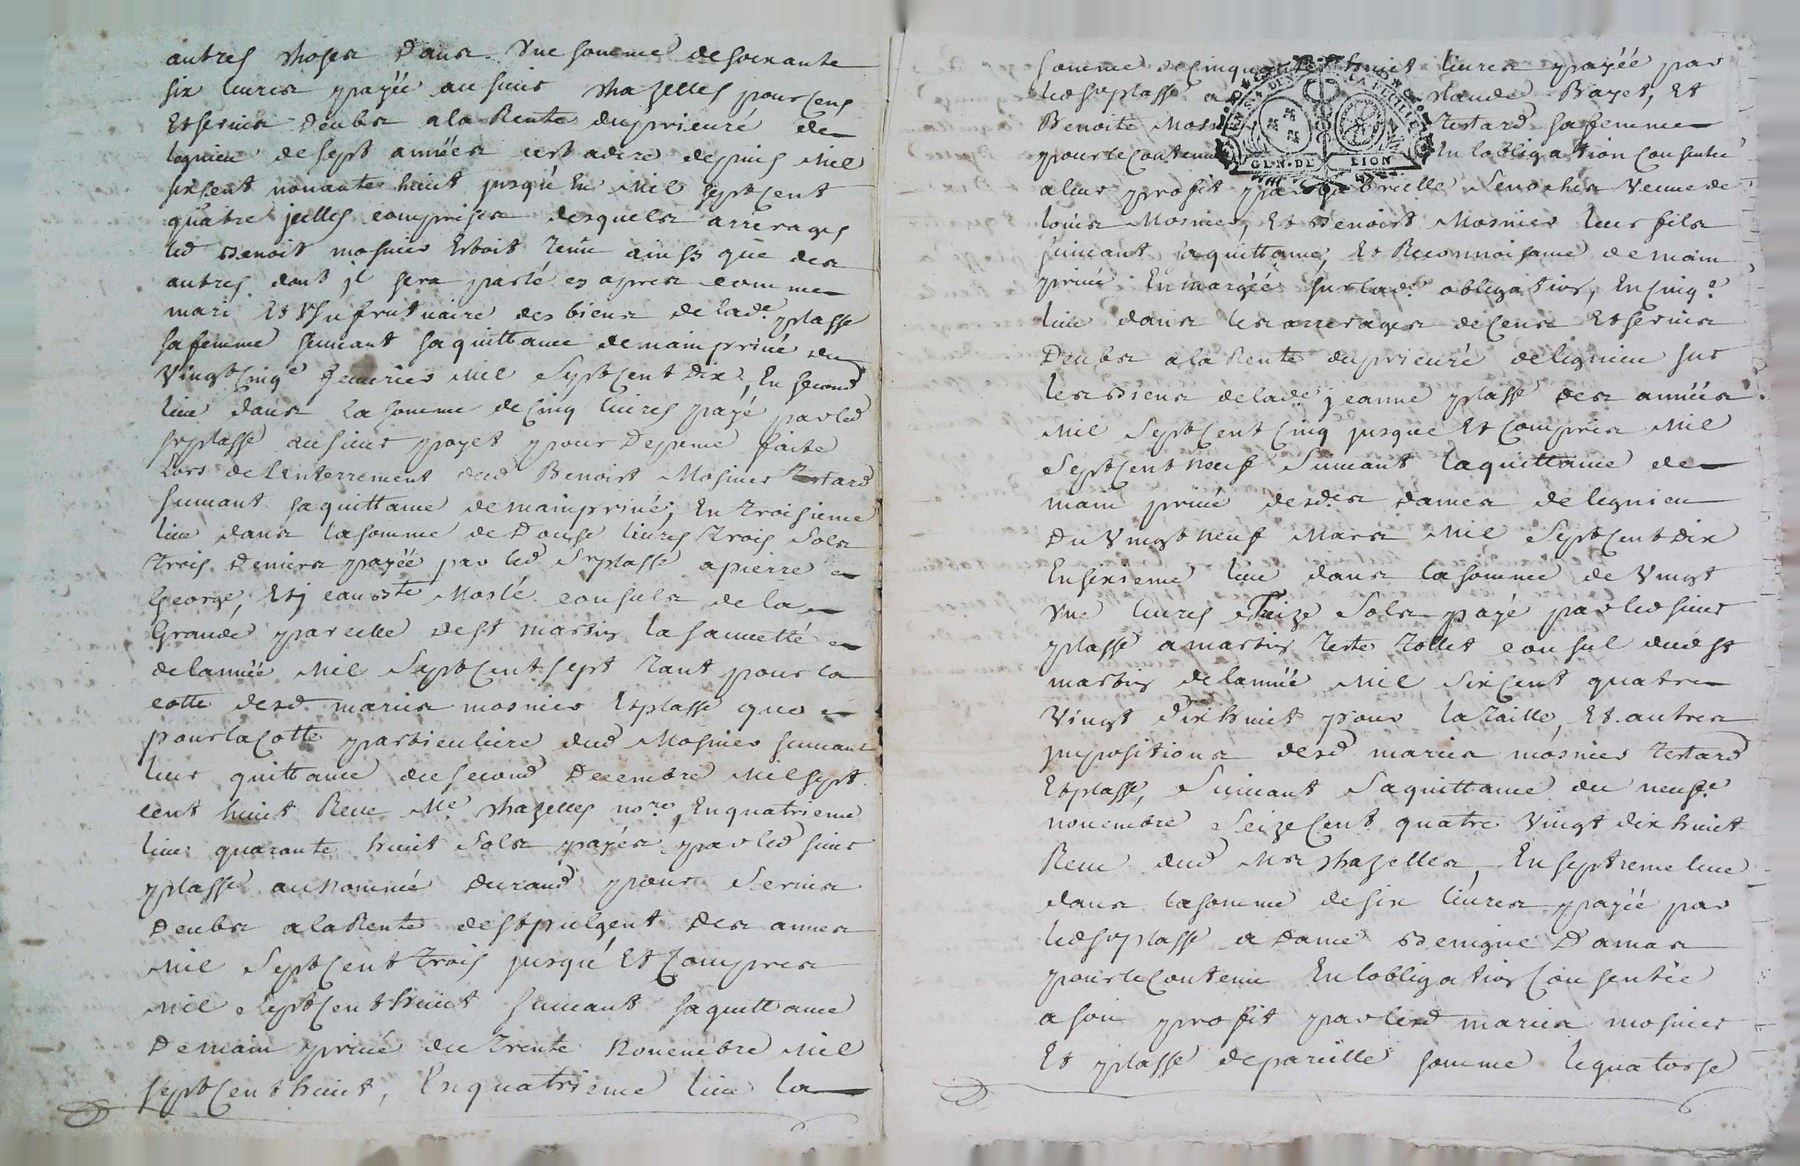 autres choses Dans Une somme de soixante
six livres payée au sieur Chazelles pour Cens
Et servis Deubs a la Rente du prieuré de
legnieu de sept années cest a dire depuis Mil
sixcent nonante huit jusqu'En Mil septcent
quatre jcelles comprises desquels arrérages
led Benoit mosnier Estoit Tenu ainsy que des
autres dont jl sera parlé cy apres comme
mari Et Usufrutuaire des biens de lad.e plasse
sa femme suivant sa quittance de main privé du
Vingt Cinq.e fevrier Mil Septcent Dix, En second
lieu dans la somme de Cinq livres payé par led
Sr plasse au sieur payet pour Depense faite
Lors de l'Enterrement dud Benoist Mosnier Testard
suivant sa quittance de main privé; En Troisieme
lieu dans la somme de Douse livres Trois Sols
Trois Deniers payée par led Sr plasse a pierre
George, Et jean Bte Maslé consuls de la
Grande parcelle de st martin la sauveté
de lannée Mil Septcent sept Tant pour la
cotte desd mariés mosnier Et plasse que
pour la Cotte particuliere dud Mosnier suivant
leur quittance du second Decembre Mil sept
cent huit Receu Me. Chazelles no.re, En quatrieme
lieu quarante huit Sols payés par led sieur
plasse au nommé Durand pour Servis
Deubs a la Rente de st pulgent Des années
Mil Septcent Trois jusqu'Et Compris
Mil Septcent huit suivant sa quittance
De main privé du Trente Novembre Mil
septcent huit, En quatrieme lieu la
somme de Cinquante huit livres payée par
led Sr plasse a Claude Bayet, Et
Benoite Mosnier Testard sa femme
pour le contenu En lobligation Consentie
GEN. DE LION
a leur profit par Veuve de
louis Mosnier, Et Benoist Mosnier leur fils
suivant la quittance, Et Reconnoissance de main
privé Enmargée sur lad.e obligation, En Cinq.e
lieu dans les arrerages de Cens Et servis
Deubs a la Rente du prieuré de legnieu sur
les Biens de lad.e jeanne plasse des années
Mil Septcent Cinq jusque Et Compris Mil
Septcent neuf Suivant la quittance de
main privé desd.es dames de legnieu
Du Vingt neuf Mars Mil Septcent Dix
En sixieme lieu dans la somme de Vingt
Une livres Seize Sols payé par led sieur
plasse a martin Teste Tollet consul dud st
martin de lannée Mil Sixcent quatre
Vingt Dix huit pour la Taille, Et autres
jmpositions desd mariés mosnier Testard
Et plasse, Suivant Sa quittance du neuf.e
novembre Seize Cent quatre Vingt dix huit
Receu dud Me Chazelles, En septieme lieu
dans la somme de six livres payée par
led Sr plasse a Dame Benigne Damas
pour le Contenu En lobligation Consentie
a son profit par lesd mariés mosnier
Et plasse de pareille somme le quatorse